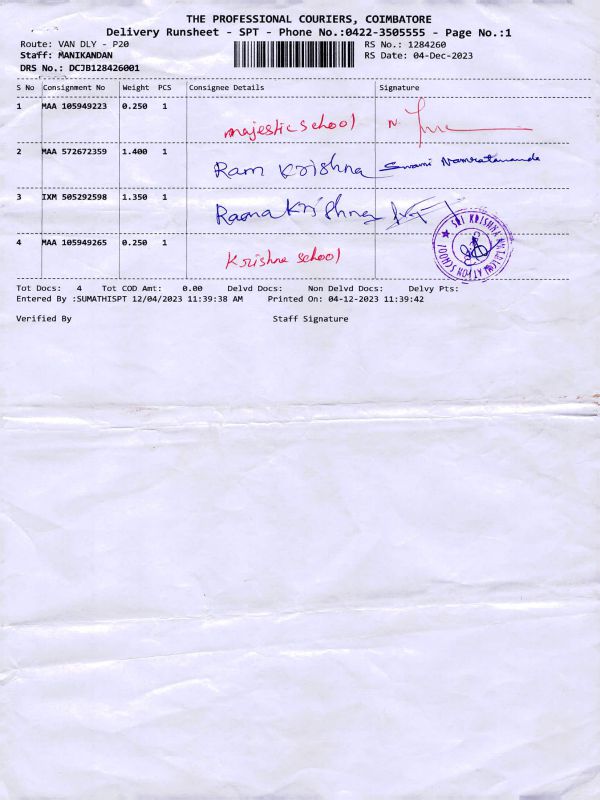 THE PROFESSIONAL COURIERS, COIMBATORE
Delivery Runsheet - SPT - Phone No.:0422-3505555 - Page No.:1
Route: VAN DLY - P20 RS No.: 1284260
Staff: MANIKANDAN RS Date: 04-Dec-2023
DRS No.: DCJB128426001
S No Consignment No Weight PCS Consignee Details Signature
1 MAA 105949223 0.250 1 majestic school N.
2 MAA 572672359 1.400 1 Ram Krishna Swami Namratananda
3 IXM 505292598 1.350 1 Rama Krishna
4 MAA 105949265 0.250 1 Krishna school SRI KRISHNA SCHOOL
Tot Docs: 4 Tot COD Amt: 0.00 Delvd Docs: Non Delvd Docs: Delvy Pts:
Entered By :SUMATHISPT 12/04/2023 11:39:38 AM Printed On: 04-12-2023 11:39:42
Verified By Staff Signature